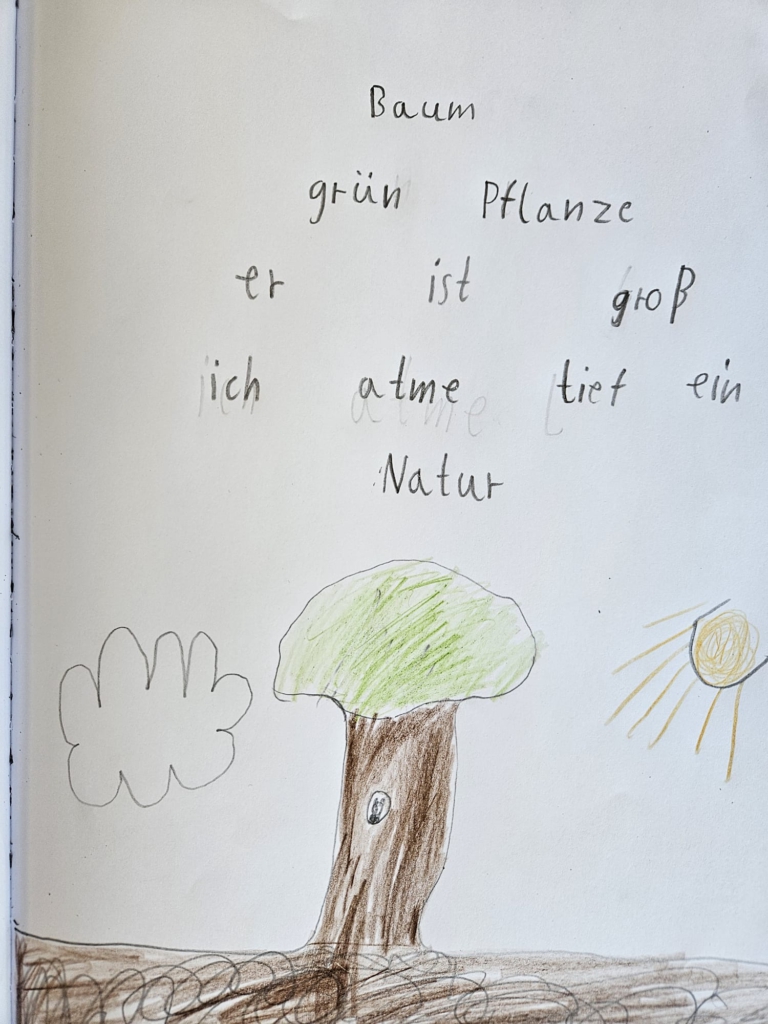 Baum
grün Pflanze
er ist groß
ich atme tief ein
Natur